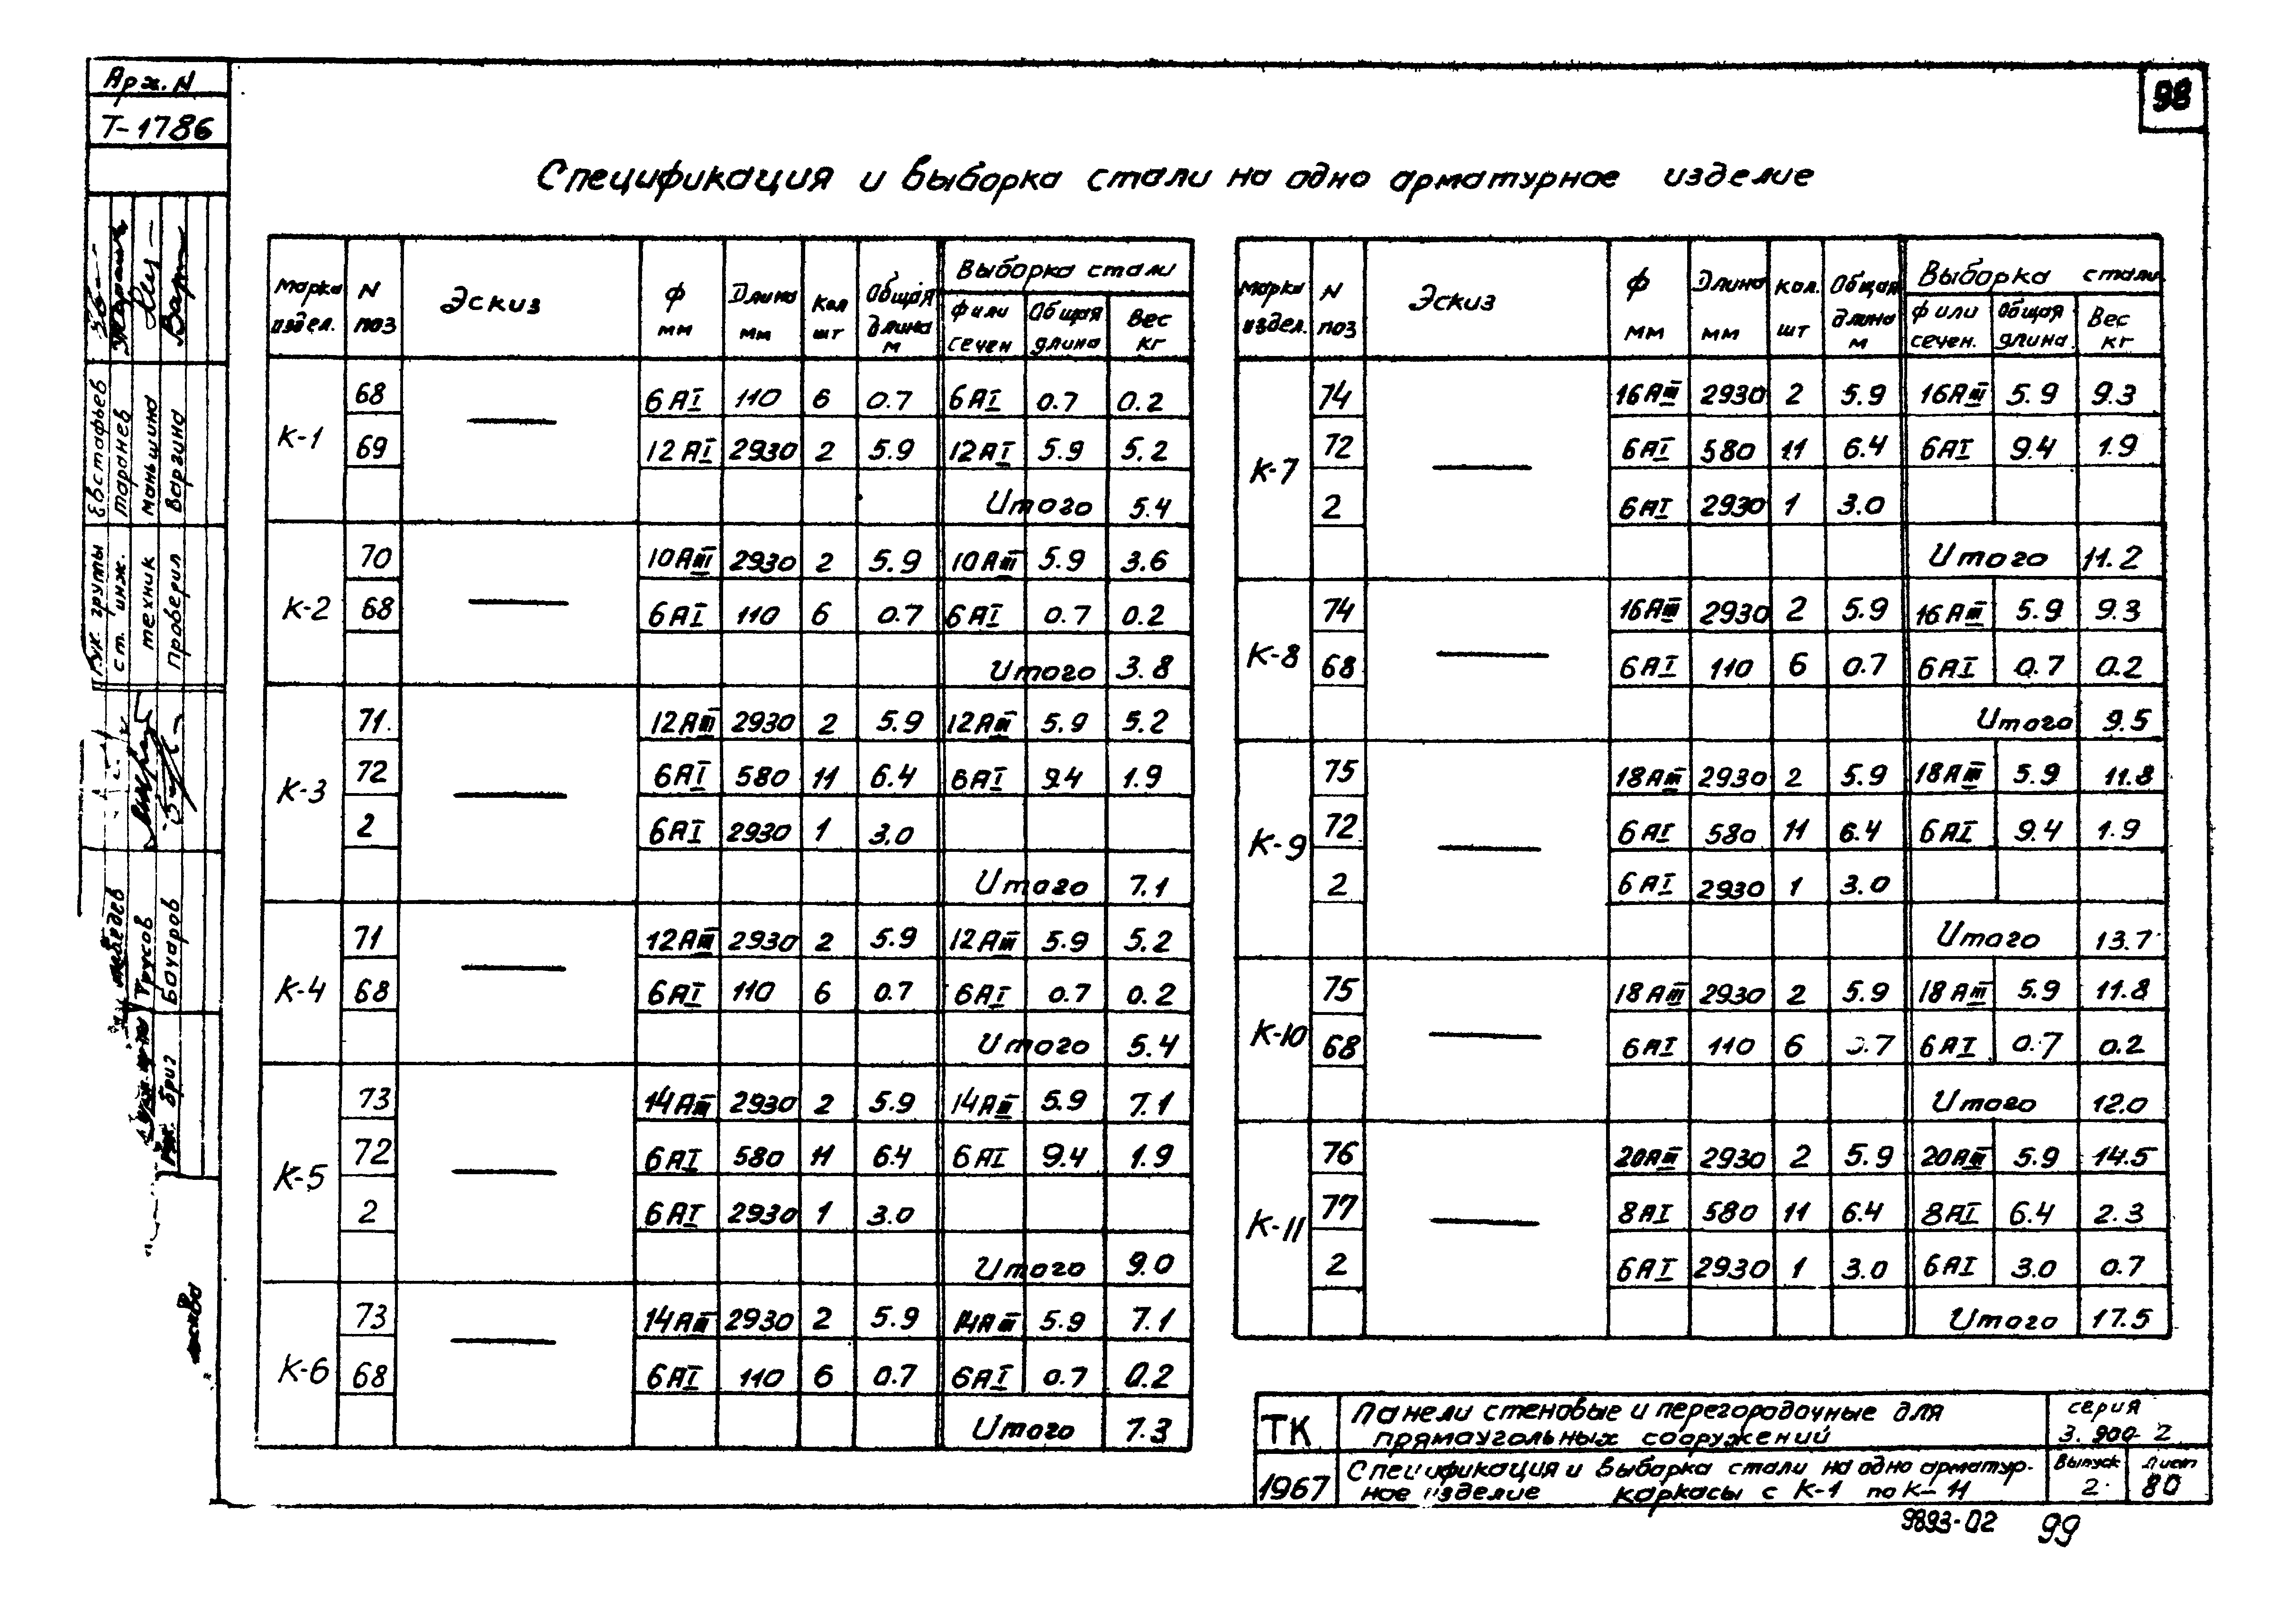 Арх. N
Т-1786
98
Спецификация и выборка стали на одно арматурное изделие
Марка издел. | N поз | Эскиз | Ф мм | Длина мм | Кол шт | Общая длина м | Выборка стали
Ф или сечен | Общая длина | Вес кг
К-1 | 68 | — | 6АI | 110 | 6 | 0.7 | 6АI | 0.7 | 0.2
69 | 12АI | 2930 | 2 | 5.9 | 12АI | 5.9 | 5.2
Итого 5.4
К-2 | 70 | — | 10АIII | 2930 | 2 | 5.9 | 10АIII | 5.9 | 3.6
68 | 6АI | 110 | 6 | 0.7 | 6АI | 0.7 | 0.2
Итого 3.8
К-3 | 71 | — | 12АIII | 2930 | 2 | 5.9 | 12АIII | 5.9 | 5.2
72 | 6АI | 580 | 11 | 6.4 | 6АI | 9.4 | 1.9
2 | 6АI | 2930 | 1 | 3.0
Итого 7.1
К-4 | 71 | — | 12АIII | 2930 | 2 | 5.9 | 12АIII | 5.9 | 5.2
68 | 6АI | 110 | 6 | 0.7 | 6АI | 0.7 | 0.2
Итого 5.4
К-5 | 73 | — | 14АIII | 2930 | 2 | 5.9 | 14АIII | 5.9 | 7.1
72 | 6АI | 580 | 11 | 6.4 | 6АI | 9.4 | 1.9
2 | 6АI | 2930 | 1 | 3.0
Итого 9.0
К-6 | 73 | — | 14АIII | 2930 | 2 | 5.9 | 14АIII | 5.9 | 7.1
68 | 6АI | 110 | 6 | 0.7 | 6АI | 0.7 | 0.2
Итого 7.3
Марка издел. | N поз | Эскиз | Ф мм | Длина мм | Кол. шт | Общая длина м | Выборка стали
Ф или сечен. | Общая длина | Вес кг
К-7 | 74 | — | 16АIII | 2930 | 2 | 5.9 | 16АIII | 5.9 | 9.3
72 | 6АI | 580 | 11 | 6.4 | 6АI | 9.4 | 1.9
2 | 6АI | 2930 | 1 | 3.0
Итого 11.2
К-8 | 74 | — | 16АIII | 2930 | 2 | 5.9 | 16АIII | 5.9 | 9.3
68 | 6АI | 110 | 6 | 0.7 | 6АI | 0.7 | 0.2
Итого 9.5
К-9 | 75 | — | 18АIII | 2930 | 2 | 5.9 | 18АIII | 5.9 | 11.8
72 | 6АI | 580 | 11 | 6.4 | 6АI | 9.4 | 1.9
2 | 6АI | 2930 | 1 | 3.0
Итого 13.7
К-10 | 75 | — | 18АIII | 2930 | 2 | 5.9 | 18АIII | 5.9 | 11.8
68 | 6АI | 110 | 6 | 0.7 | 6АI | 0.7 | 0.2
Итого 12.0
К-11 | 76 | — | 20АIII | 2930 | 2 | 5.9 | 20АIII | 5.9 | 14.5
77 | 8АI | 580 | 11 | 6.4 | 8АI | 6.4 | 2.3
2 | 6АI | 2930 | 1 | 3.0 | 6АI | 3.0 | 0.7
Итого 17.5
ТК
1967
Панели стеновые и перегородочные для
прямоугольных сооружений
серия
3.900-2
Спецификация и выборка стали на одно арматур-
ное изделие каркасы с К-1 по К-11
Выпуск
2
Лист
80
9893-02 99
Рук. группы Евстафьев
ст. инж. Таронев
техник Маньшина
проверил Варгина
Лебедев
Трусов
Рук. бриг Бочаров